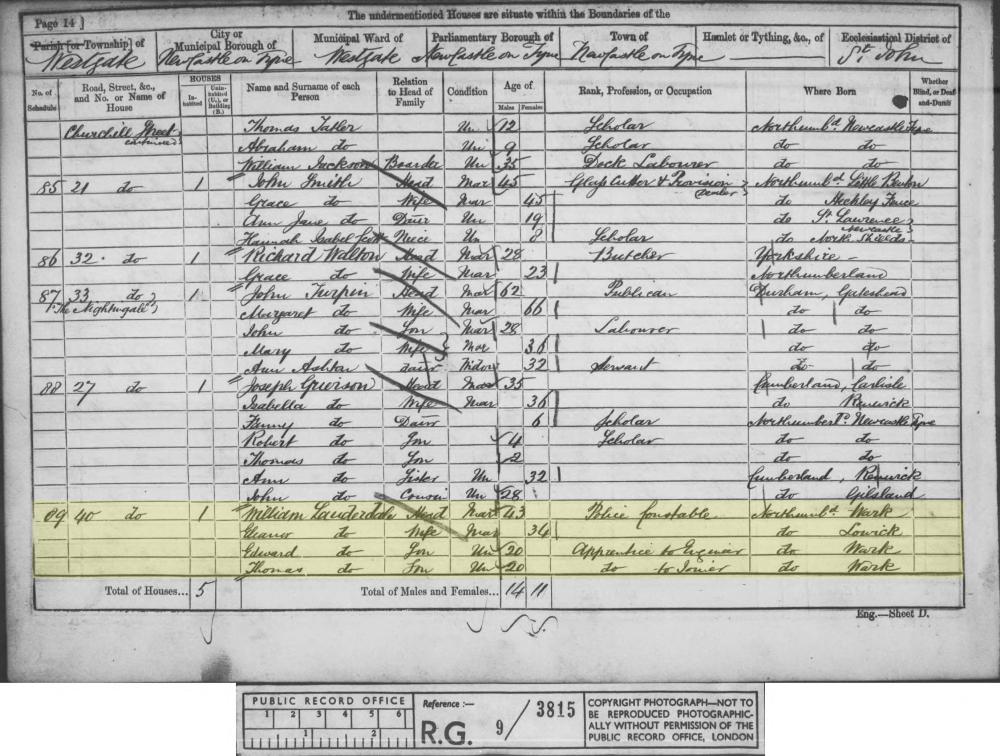 The undermentioned Houses are situate within the Boundaries of the
Page 14 ]
Parish [or Township] of Westgate
City or Municipal Borough of Newcastle on Tyne
Municipal Ward of Westgate
Parliamentary Borough of Newcastle on Tyne
Town of Newcastle on Tyne
Hamlet or Tything, &c., of
Ecclesiastical District of St. John
No. of Schedule
Road, Street, &c., and No. or Name of House
HOUSES
Inhabited
Uninhabited (U.), or Building (B.)
Name and Surname of each Person
Relation to Head of Family
Condition
Age of
Males
Females
Rank, Profession, or Occupation
Where Born
Whether Blind, or Deaf-and-Dumb
Churchill Street continued Thomas Tatler Un 12 Scholar Northumbd. Newcastle Tyne
Abraham do Un 9 Scholar do do
William Jackson Boarder Un 35 Dock Labourer do do
85 21 do 1 John Smith Head Mar 45 Glass Cutter & Provision Dealer Northumbd. Little Benton
Grace do Wife Mar 45 do
Ann Jane do Daur Un 19 do St. Lawrence Newcastle
Hannah Isabel Scott Neice Un 8 Scholar do North Shields
86 32 do 1 Richard Walton Head Mar 28 Butcher Yorkshire
Grace do Wife Mar 23 Northumberland
87 33 do 1 John Turpin Head Mar 62 Publican Durham, Gateshead
"The Nightingale" Margaret do Wife Mar 66 do do
John do Son Mar 28 Labourer do do
Mary do Wife Mar 36 do do
Ann Ashton daur Widow 32 Servant do do
88 27 do 1 Joseph Head Mar 35 Cumberland, Carlisle
Isabella do Wife Mar 36 do Renwick
Fanny do Daur 6 Scholar Northumberd. Newcastle Tyne
Robert do Son 4 Scholar do do
Thomas do Son 2 do do
Ann do Sister Un 32 Cumberland, Renwick
John do Cousin Un 28 do Gilsland
89 40 do 1 William Lauterdale Head Mar 43 Police Constable Northumbd. Wark
Eleanor do Wife Mar 34 do Lowick
Edward do Son Un 20 Apprentice to Enginer do Wark
Thomas do Son Un 20 do to Joiner do Wark
Total of Houses... 5
Total of Males and Females... 14 11
Eng.—Sheet D.
PUBLIC RECORD OFFICE
1 2 3 4 5 6
1 2
Reference :—
R.G. 9 / 3815
COPYRIGHT PHOTOGRAPH—NOT TO
BE REPRODUCED PHOTOGRAPHIC-
ALLY WITHOUT PERMISSION OF THE
PUBLIC RECORD OFFICE, LONDON